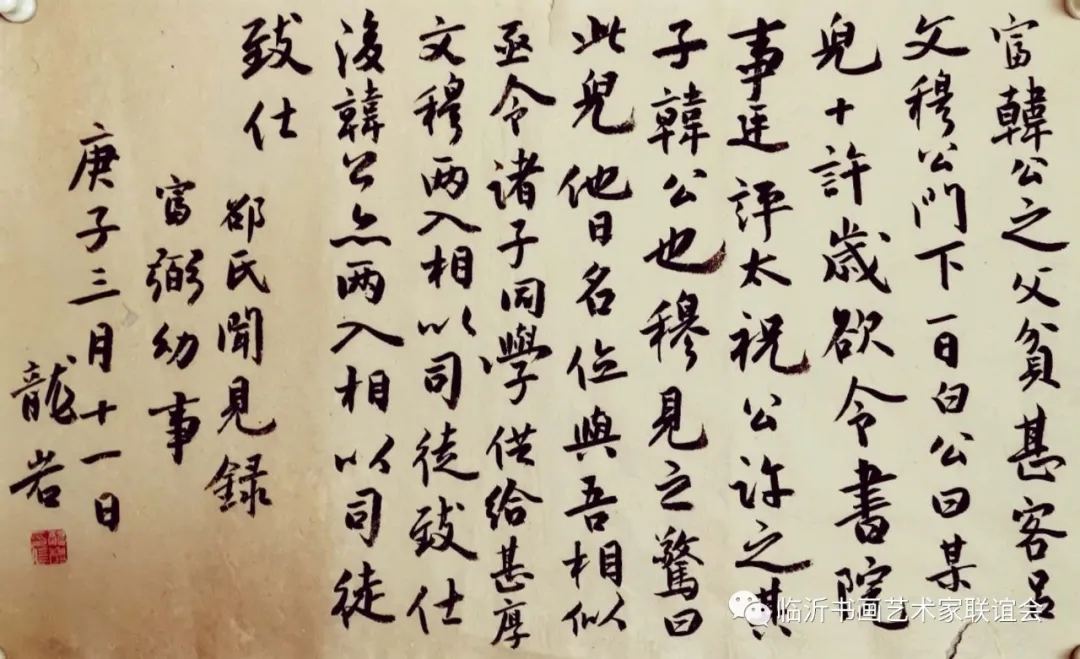 富韓公之父貧甚客呂
文穆公門下一日白公曰某
兒十許歲欲令書院
事廷評太祝公許之其
子韓公也穆見之驚曰
此兒他日名位與吾相似
亟令諸子同學供給甚厚
文穆两入相以司徒致仕
後韓公亦两入相以司徒
致仕
邵氏聞見録
富弼幼事
庚子三月十一日
龍岩
临沂书画艺术家联谊会